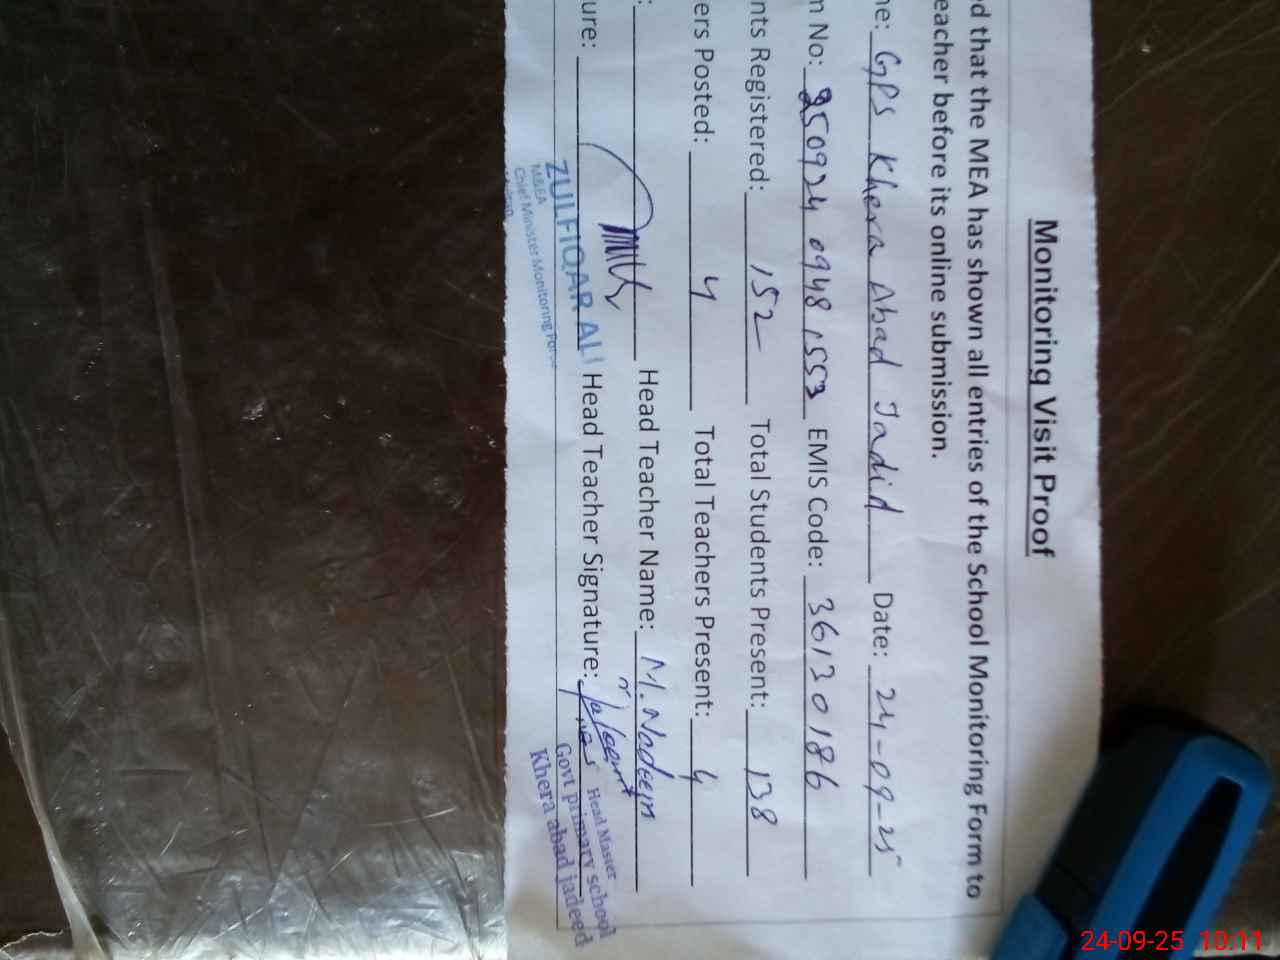 Monitoring Visit Proof
ed that the MEA has shown all entries of the School Monitoring Form to
eacher before its online submission.
ne: GPS Khera Abad Jadid Date: 24-09-25
n No: 250924 0948 1553 EMIS Code: 36130186
nts Registered: 152 Total Students Present: 138
ers Posted: 4 Total Teachers Present: 4
: Head Teacher Name: M. Nadeem
ure: Head Teacher Signature:
ZULFIQAR ALI
M&EA
Chief Minister Monitoring Force
Head Master
Govt primary school
Khera abad jadeed
24-09-25 10:11